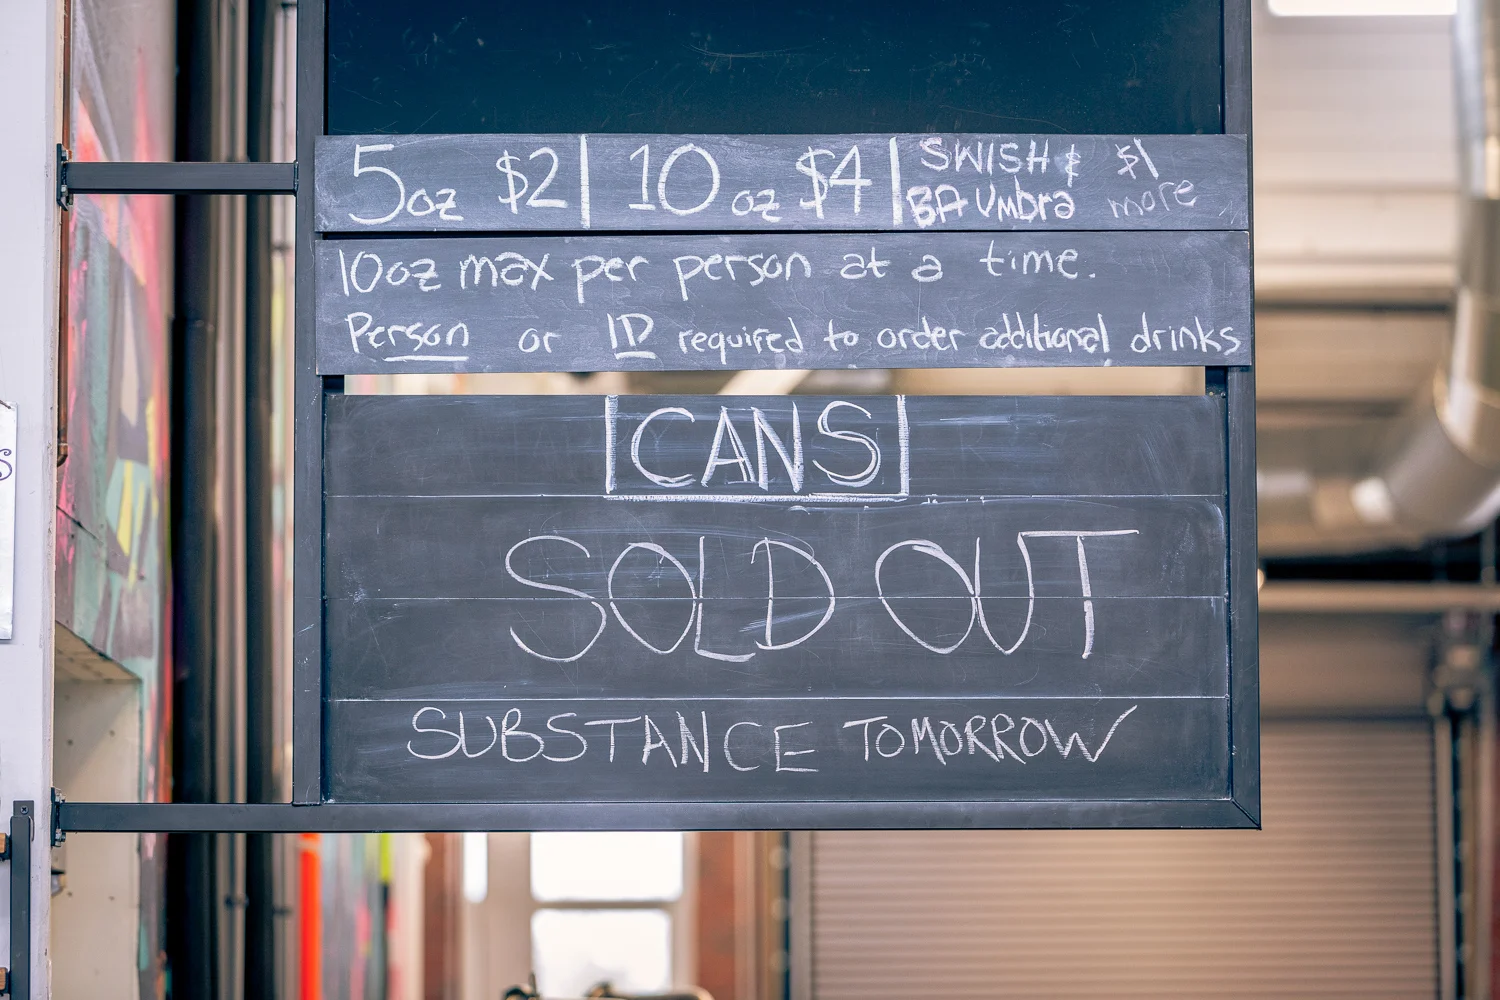 5oz $2 | 10oz $4 | SWISH & $1
BA Umbra more
10oz max per person at a time.
Person or ID required to order additional drinks
CANS
SOLD OUT
SUBSTANCE TOMORROW